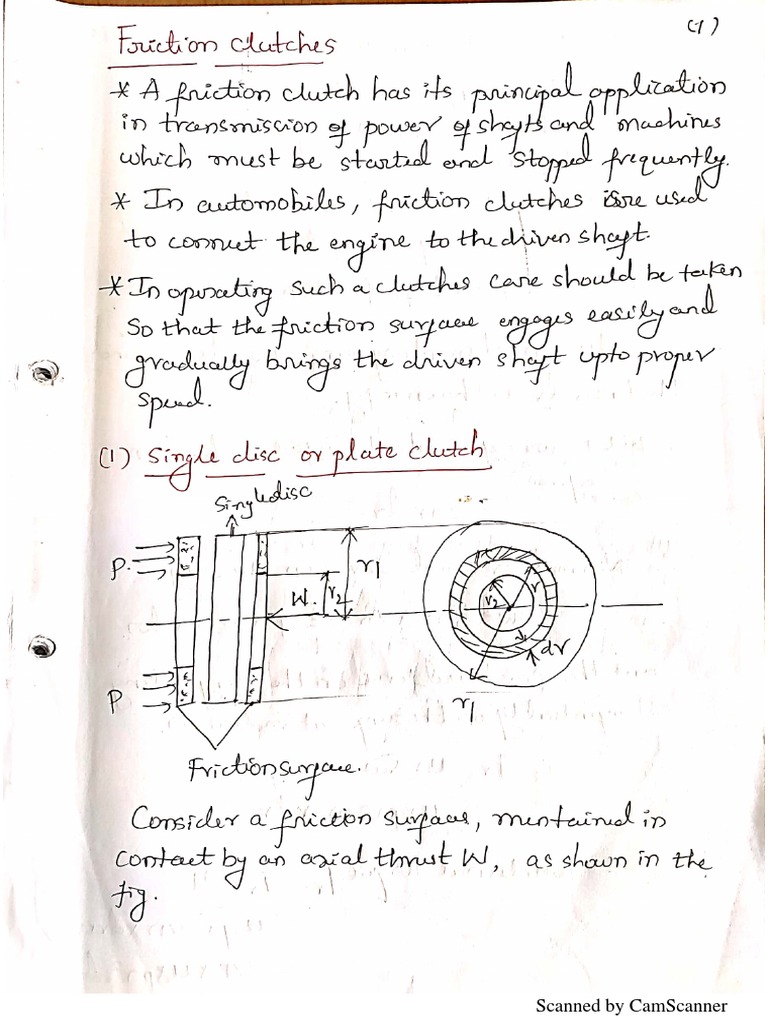 (1)
Friction clutches
* A friction clutch has its principal application
in transmission of power of shafts and machines
which must be started and stopped frequently.
* In automobiles, friction clutches are used
to connect the engine to the driven shaft.
* In operating such a clutches care should be taken
so that the friction surface engages easily and
gradually brings the driven shaft upto proper
speed.
(1) Single disc or plate clutch
Single disc
P.
W.
r2
r1
r2
r
dr
P
r1
Friction surface.
Consider a friction surface, mentained in
contact by an axial thrust W, as shown in the
fig.
Scanned by CamScanner